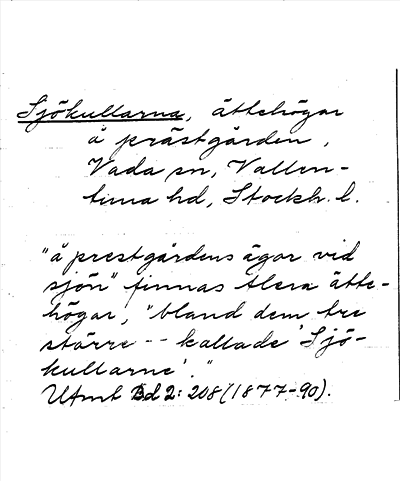 Sjökullarna, ättehögar
å prästgården,
Vada sn, Vallen-
tuna hd, Stockh. l.
"å prestgårdens ägor vid
sjön" finnas flera ätte-
högar, "bland dem tre
större -- kallade 'Sjö-
kullarne'."
Utmt Bd 2: 208 (1877-90).